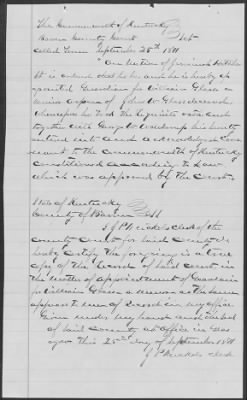 The Commonwealth of Kentucky
Barren County Court Sct
Called Term September 25th 1811
On motion of
It is ordered that he and he is hereby
appointed Guardian for William Glass a
minor orphan of John W Glass deceased
whereupon he took the requisite oath and
together with George W his security
entered into and acknowledged Cove
nant to the Commonwealth of Kentucky
Conditioned according to law
which was approved by the Court
State of Kentucky
County of Barren Sct
I J P Nuckols clerk of the
County Court for said County do
hereby certify the foregoing is a true
copy of the record of said court in
the matter of appointment of Guardian
for William Glass a minor as the same
appears to me of record in my office
Given under my hand and
of said County at office in Glas
gow this 25th day of September 1811
J P Nuckols clerk